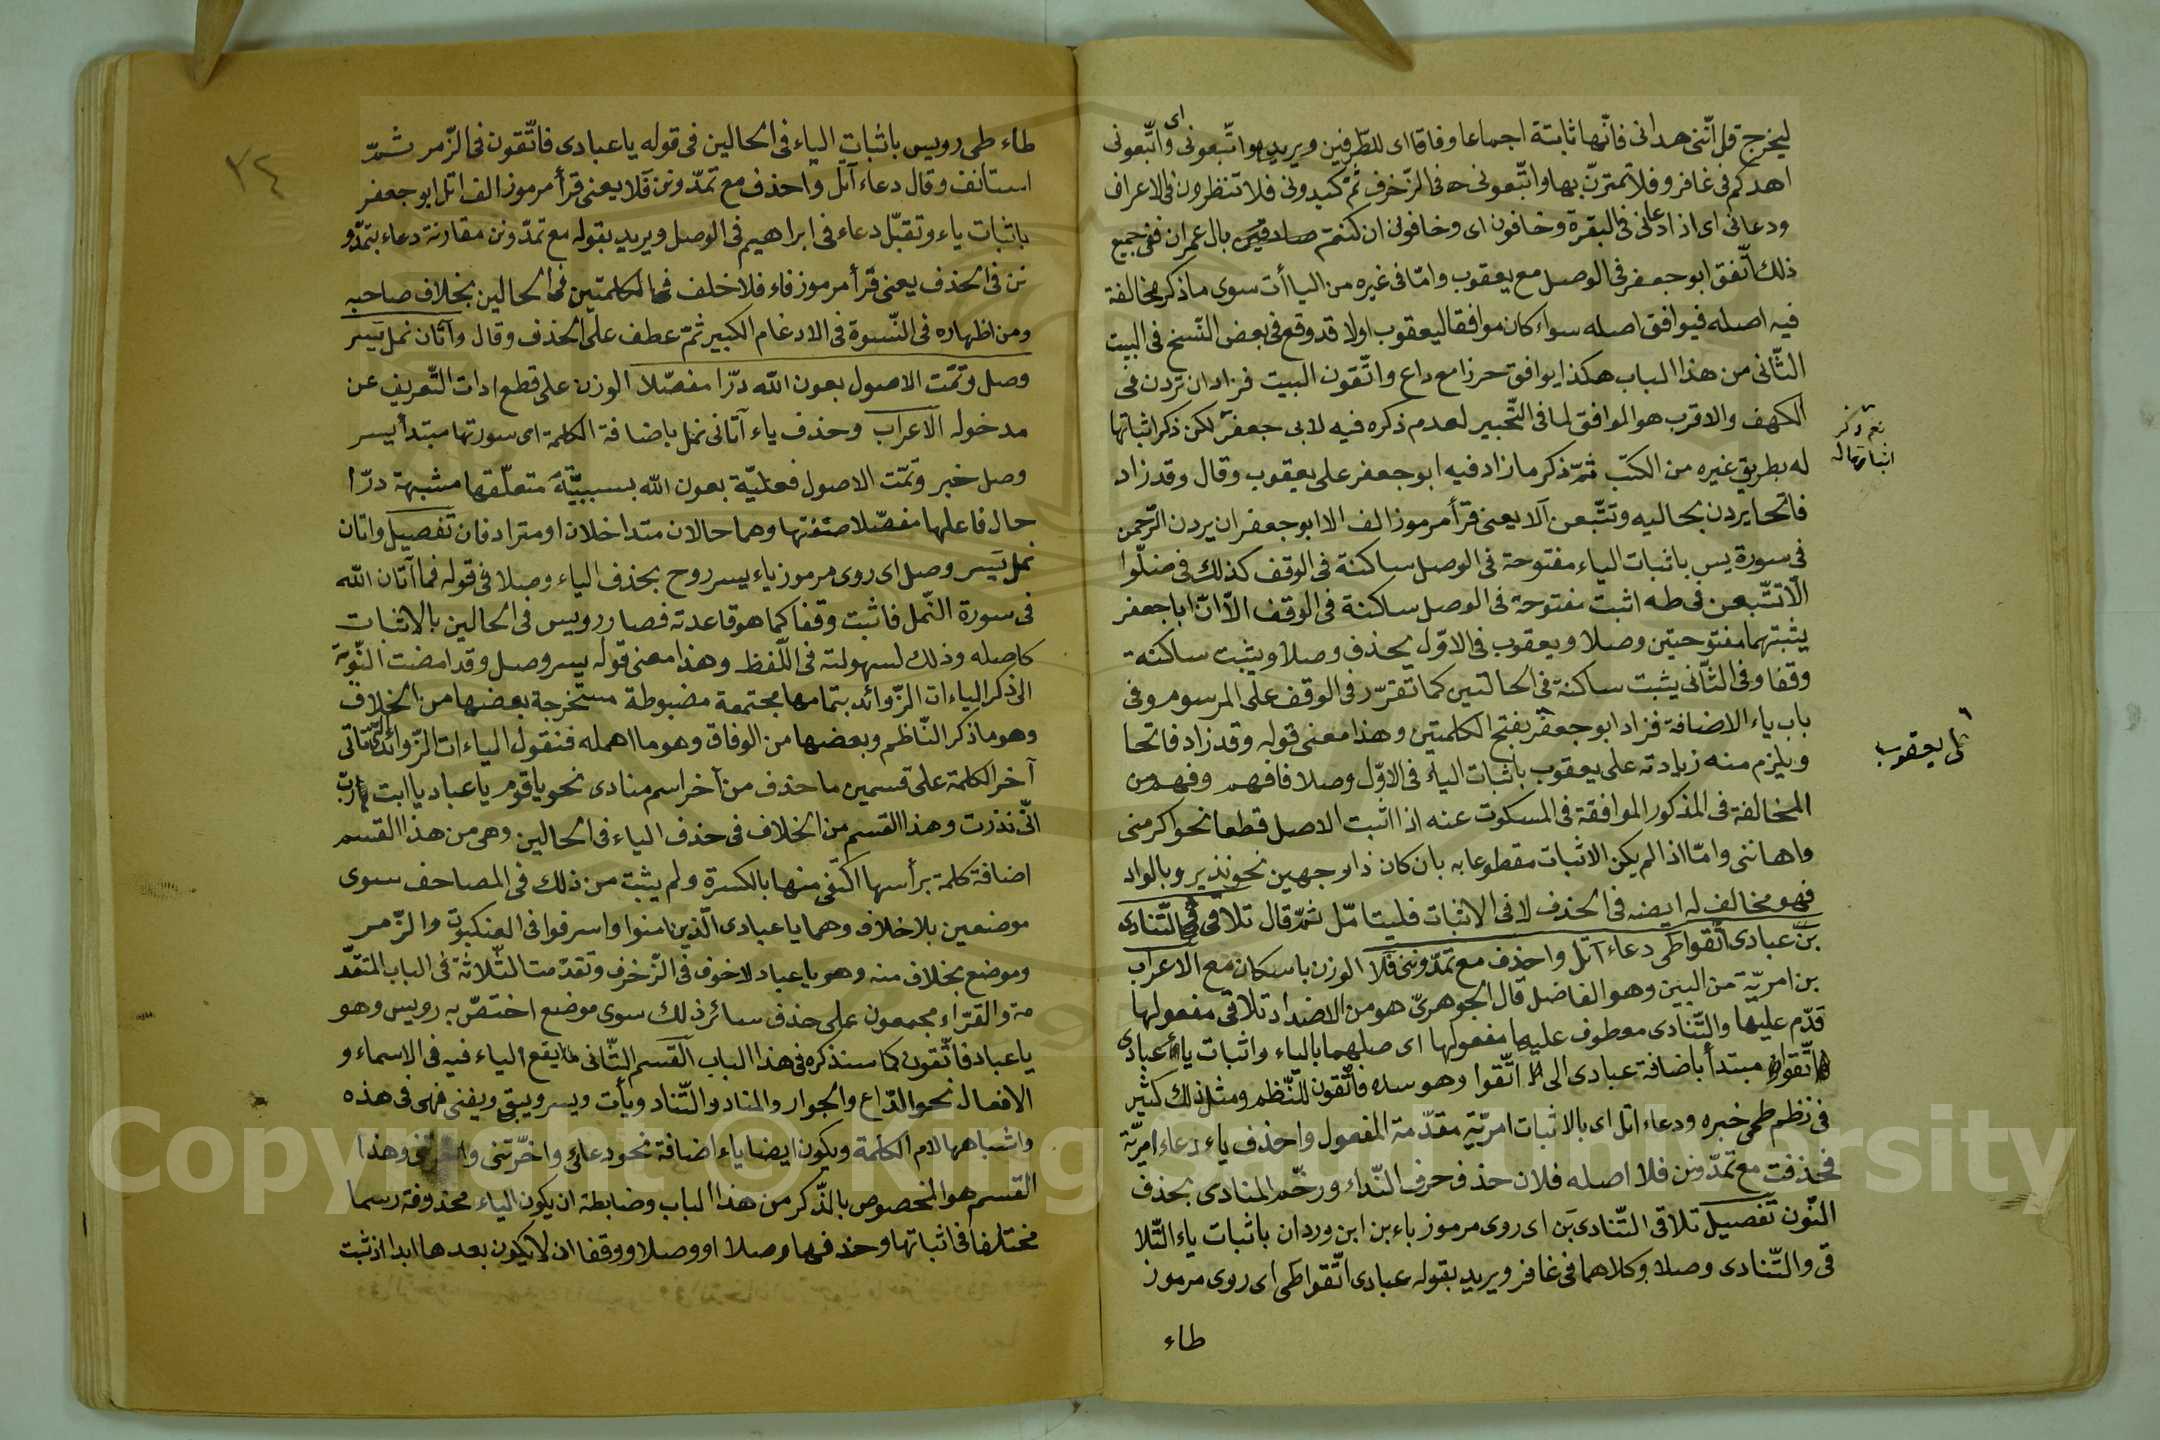 ليخرج قل انّنى هدانى فانّها ثابتة اجماعا وفاقا اى للطّرفين ويريد بواتّبعونى اى واتّبعونى
اهدكم فى غافر وفلا تمترنّ بها واتّبعونى فى الزّخرف ثمّ كيدونى فلا تنظرون فى الاعراف
ودعانى اى اذا دعانى فى البقرة وخافون اى وخافونى ان كنتم صادقين بال عمران ففى جميع
ذلك اتّفق ابو جعفر فى الوصل مع يعقوب وامّا فى غيره من الياأت سوى ما ذكر مخالفة
فيه اصله فيوافق اصله سواء كان موافقا ليعقوب اولا قد وقع فى بعض النّسخ فى البيت
الثّانى من هذا الباب هكذا يوافق حرزا مع داع واتّقون البيت فزاد ان تردن فى
الكهف والاقرب هو الموافق لما فى التّحبير لعدم ذكره فيه لابى جعفر لكن ذكر اثباتها
له بطريق غيره من الكتب ثمّ ذكر ما زاد فيه ابو جعفر على يعقوب وقال وقد زاد
فاتحا يردن بحاليه وتتّبعن آلا يعنى قرأ مرموز الف الا ابو جعفر ان يردن الرّحمن
فى سورة يس باثبات الياء مفتوحة فى الوصل ساكنة فى الوقف كذلك فى ضلّوا
الّا تتّبعن فى طه اثبت مفتوحة فى الوصل ساكنة فى الوقف الّا انّ ابا جعفر
يثبتهما مفتوحتين وصلا ويعقوب فى الاوّل يحذف وصلا ويثبت ساكنة
وقفا وفى الثّانى يثبت ساكنة فى الحالتين كما تقرّر فى الوقف على المرسوم وفى
باب ياء الاضافة فزاد ابو جعفر بفتح الكلمتين وهذا معنى قوله وقد زاد فاتحا
ويلزم منه زيادته على يعقوب باثبات الياء فى الاوّل وصلا فافهم وفهم من
المخالفة فى المذكور الموافقة فى المسكوت عنه اذا اثبت الاصل قطعا نحو اكرمنى
واهاننى وامّا اذا لم يكن الاثبات مقطوعا به بان كان ذا وجهين نحو نذير وبالواد
فهو مخالف له ايضا فى الحذف لا فى الاثبات فليتامّل ثمّ قال تلاقى فى التّنادى
بن عبادى اتّقوا طى دعاء آتل واحذف مع تمدّوننى فلا الوزن باسكان مع الاعراب
بن امريّة من البين وهو الفاضل قال الجوهرىّ هو من الاضداد تلاقى مفعولها
قدّم عليها والتّنادى معطوف عليها مفعولها اى صلهما بالياء واثبات ياء عبادى
اتّقوا مبتدأ باضافة عبادى الى اتّقوا وهو سده فاتّقون للنّظم ومثل ذلك كثير
فى نظم طى خبره ودعاء اتل اى بالاثبات امريّة مقدّمة المفعول واحذف ياء دعاء امريّة
فحذفت مع تمدّونن فلا اصله فلان حذف حرف النّداء ورخّم المنادى بحذف
النّون تفصيل تلاقى التّنادى بَن اى روى مرموز باء بن ابن وردان باثبات ياء التّلا
قى والتّنادى وصلا وكلاهما فى غافر ويريد بقوله عبادى اتّقوا طى اى روى مرموز
طاء
نعم ذكر
اثباتها له
على يعقوب
٧٤
طاء طى رويس باثبات الياء فى الحالين فى قوله يا عبادى فاتّقون فى الزّمر ثمّ
استانف وقال دعاء آتل واحذف مع تمدّونن فَلا يعنى قرأ مرموز الف اتل ابو جعفر
باثبات ياء وتقبّل دعاء فى ابراهيم فى الوصل ويريد بقوله مع تمدّونن مقارنة دعاء بتمدّو
نن فى الحذف يعنى قرأ مرموز فاء فلا خلف فى الكلمتين فى الحالين بخلاف صاحبه
ومن اظهاره فى النّسوة فى الادغام الكبير ثمّ عطف على الحذف وقال وآتان نمل يَسر
وصل وتمّت الاصول بعون اللّه درّا مفصّلا الوزن على قطع ادات التّعريف عن
مدخوله الاعراب وحذف ياء آتانى نمل باضافة الكلمة اى سورتها مبتدأ يسر
وصل خبر وتمّت الاصول فعليّة بعون اللّه بسببيّة متعلّقها مشبهة درّا
حال فاعلها مفصّلا صفتها وهما حالان متداخلان او مترادفان تفصيل واتان
نمل يَسر وصل اى روى مرموز ياء يسر روح بحذف الياء وصلا فى قوله فما آتان اللّه
فى سورة النّمل فاثبت وقفا كما هو قاعدته فصار ورويس فى الحالين بالاثبات
كاصله وذلك لسهولته فى اللّفظ وهذا معنى قوله يسر وصل وقد امضت النّوبة
الى ذكر الياءات الزّوائد بتمامها مجتمعة مضبوطة مستخرجة بعضها من الخلاف
وهو ما ذكر النّاظم وبعضها من الوفاق وهو ما اهمله فنقول الياءات الزّوائد الّتى تاتى
آخر الكلمة على قسمين ما حذف من آخر اسم منادى نحو يا قوم يا عباد يا ابت ربّ
انّى نذرت وهذا القسم من الخلاف فى حذف الياء فى الحالين وهى من هذا القسم
اضافة كلمة برأسها اكتفى منها بالكسرة ولم يثبت من ذلك فى المصاحف سوى
موضعين بلا خلاف وهما يا عبادى الّذين امنوا واسرفوا فى العنكبوت والزّمر
وموضع بخلاف منه وهو يا عباد لا خوف فى الزّخرف وتقدّمت الثّلاثة فى الباب المتقدّ
مة والقرّاء مجمعون على حذف سائر ذلك سوى موضع اختصّ به رويس وهو
يا عباد فاتّقون كما سنذكره فى هذا الباب القسم الثّانى ما يقع الياء فيه فى الاسماء و
الافعال نحو الدّاع والجوار والمناد والتّناد ويأت ويسر ويتق ويغنى فهى فى هذه
واشباهها لام الكلمة ويكون ايضا ياء اضافة نحو دعائى واخّرتنى وهذا
القسم هو المخصوص بالذّكر من هذا الباب وضابطة ان يكون الياء محذوفة رسما
مختلفا فى اثباتها وحذفها وصلا او وصلا ووقفا ان لا يكون بعدها ابدا اذ ثبت
Copyright © King Saud University